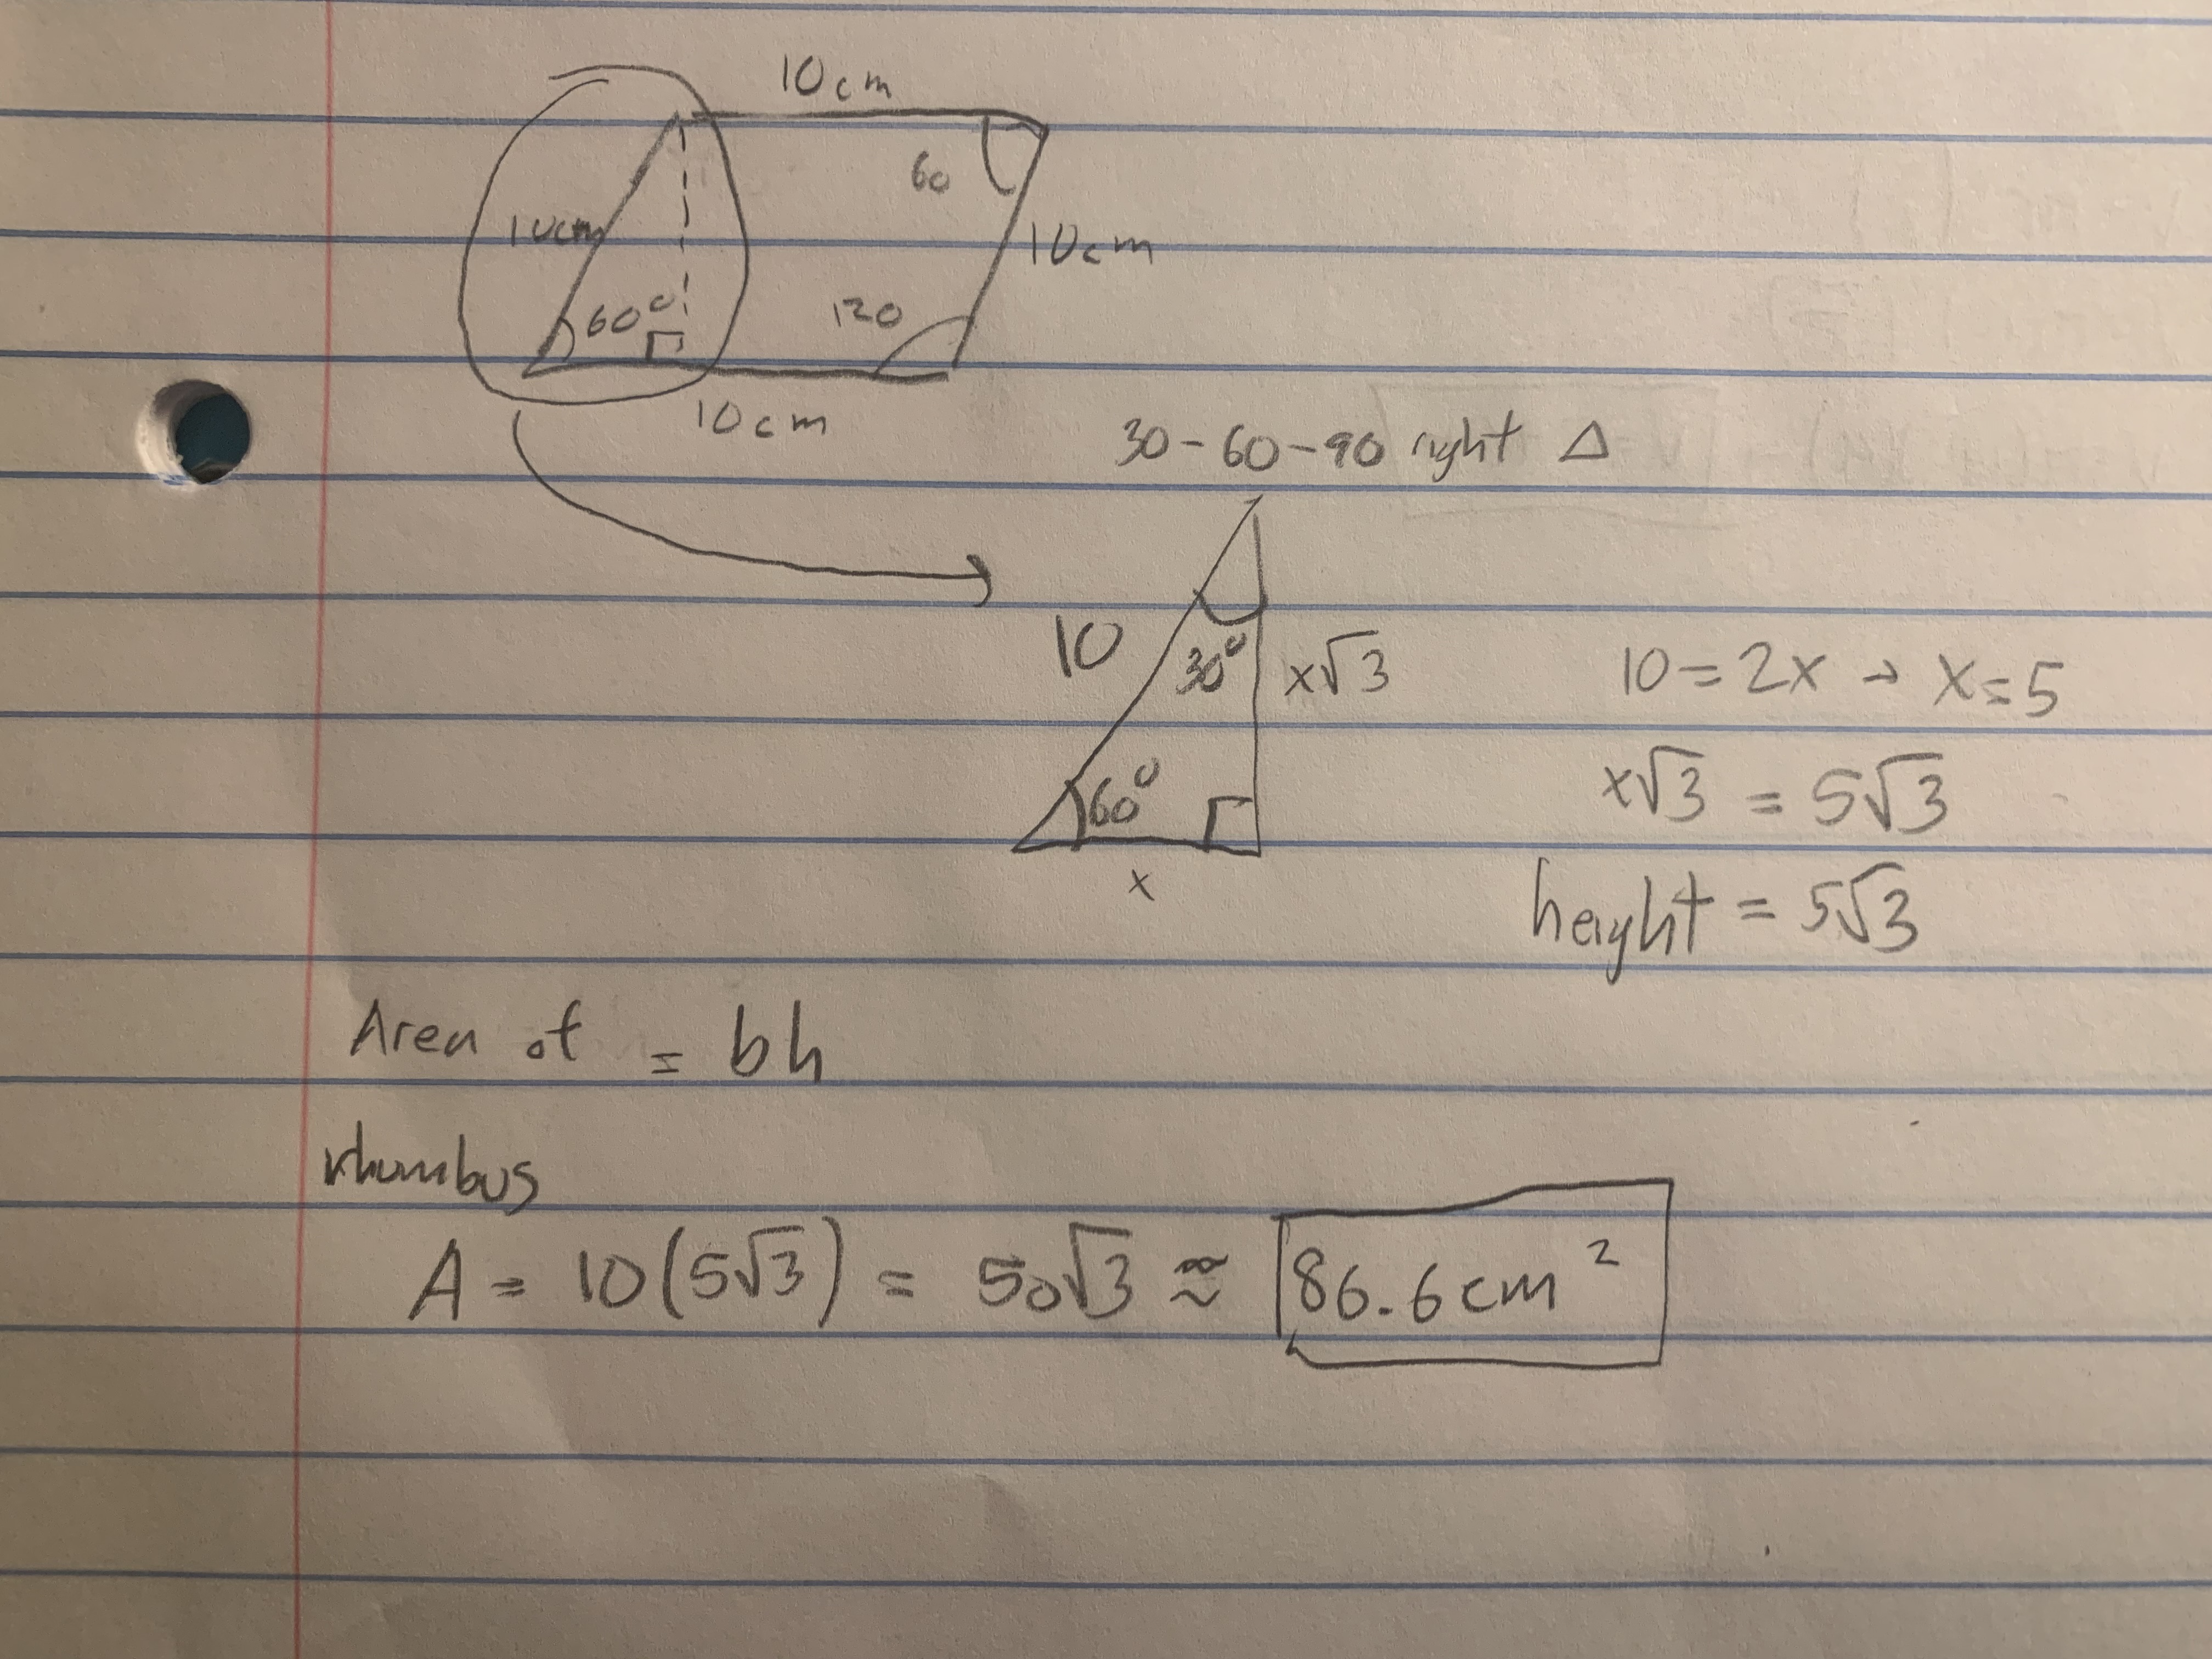 10cm
60
10cm
10cm
60°
120
10cm
30-60-90 right Δ
10
30°
x√3
10=2x → x=5
60°
x√3 = 5√3
x
height = 5√3
Area of = bh
rhombus
A = 10(5√3) = 50√3 ≈ 86.6cm²